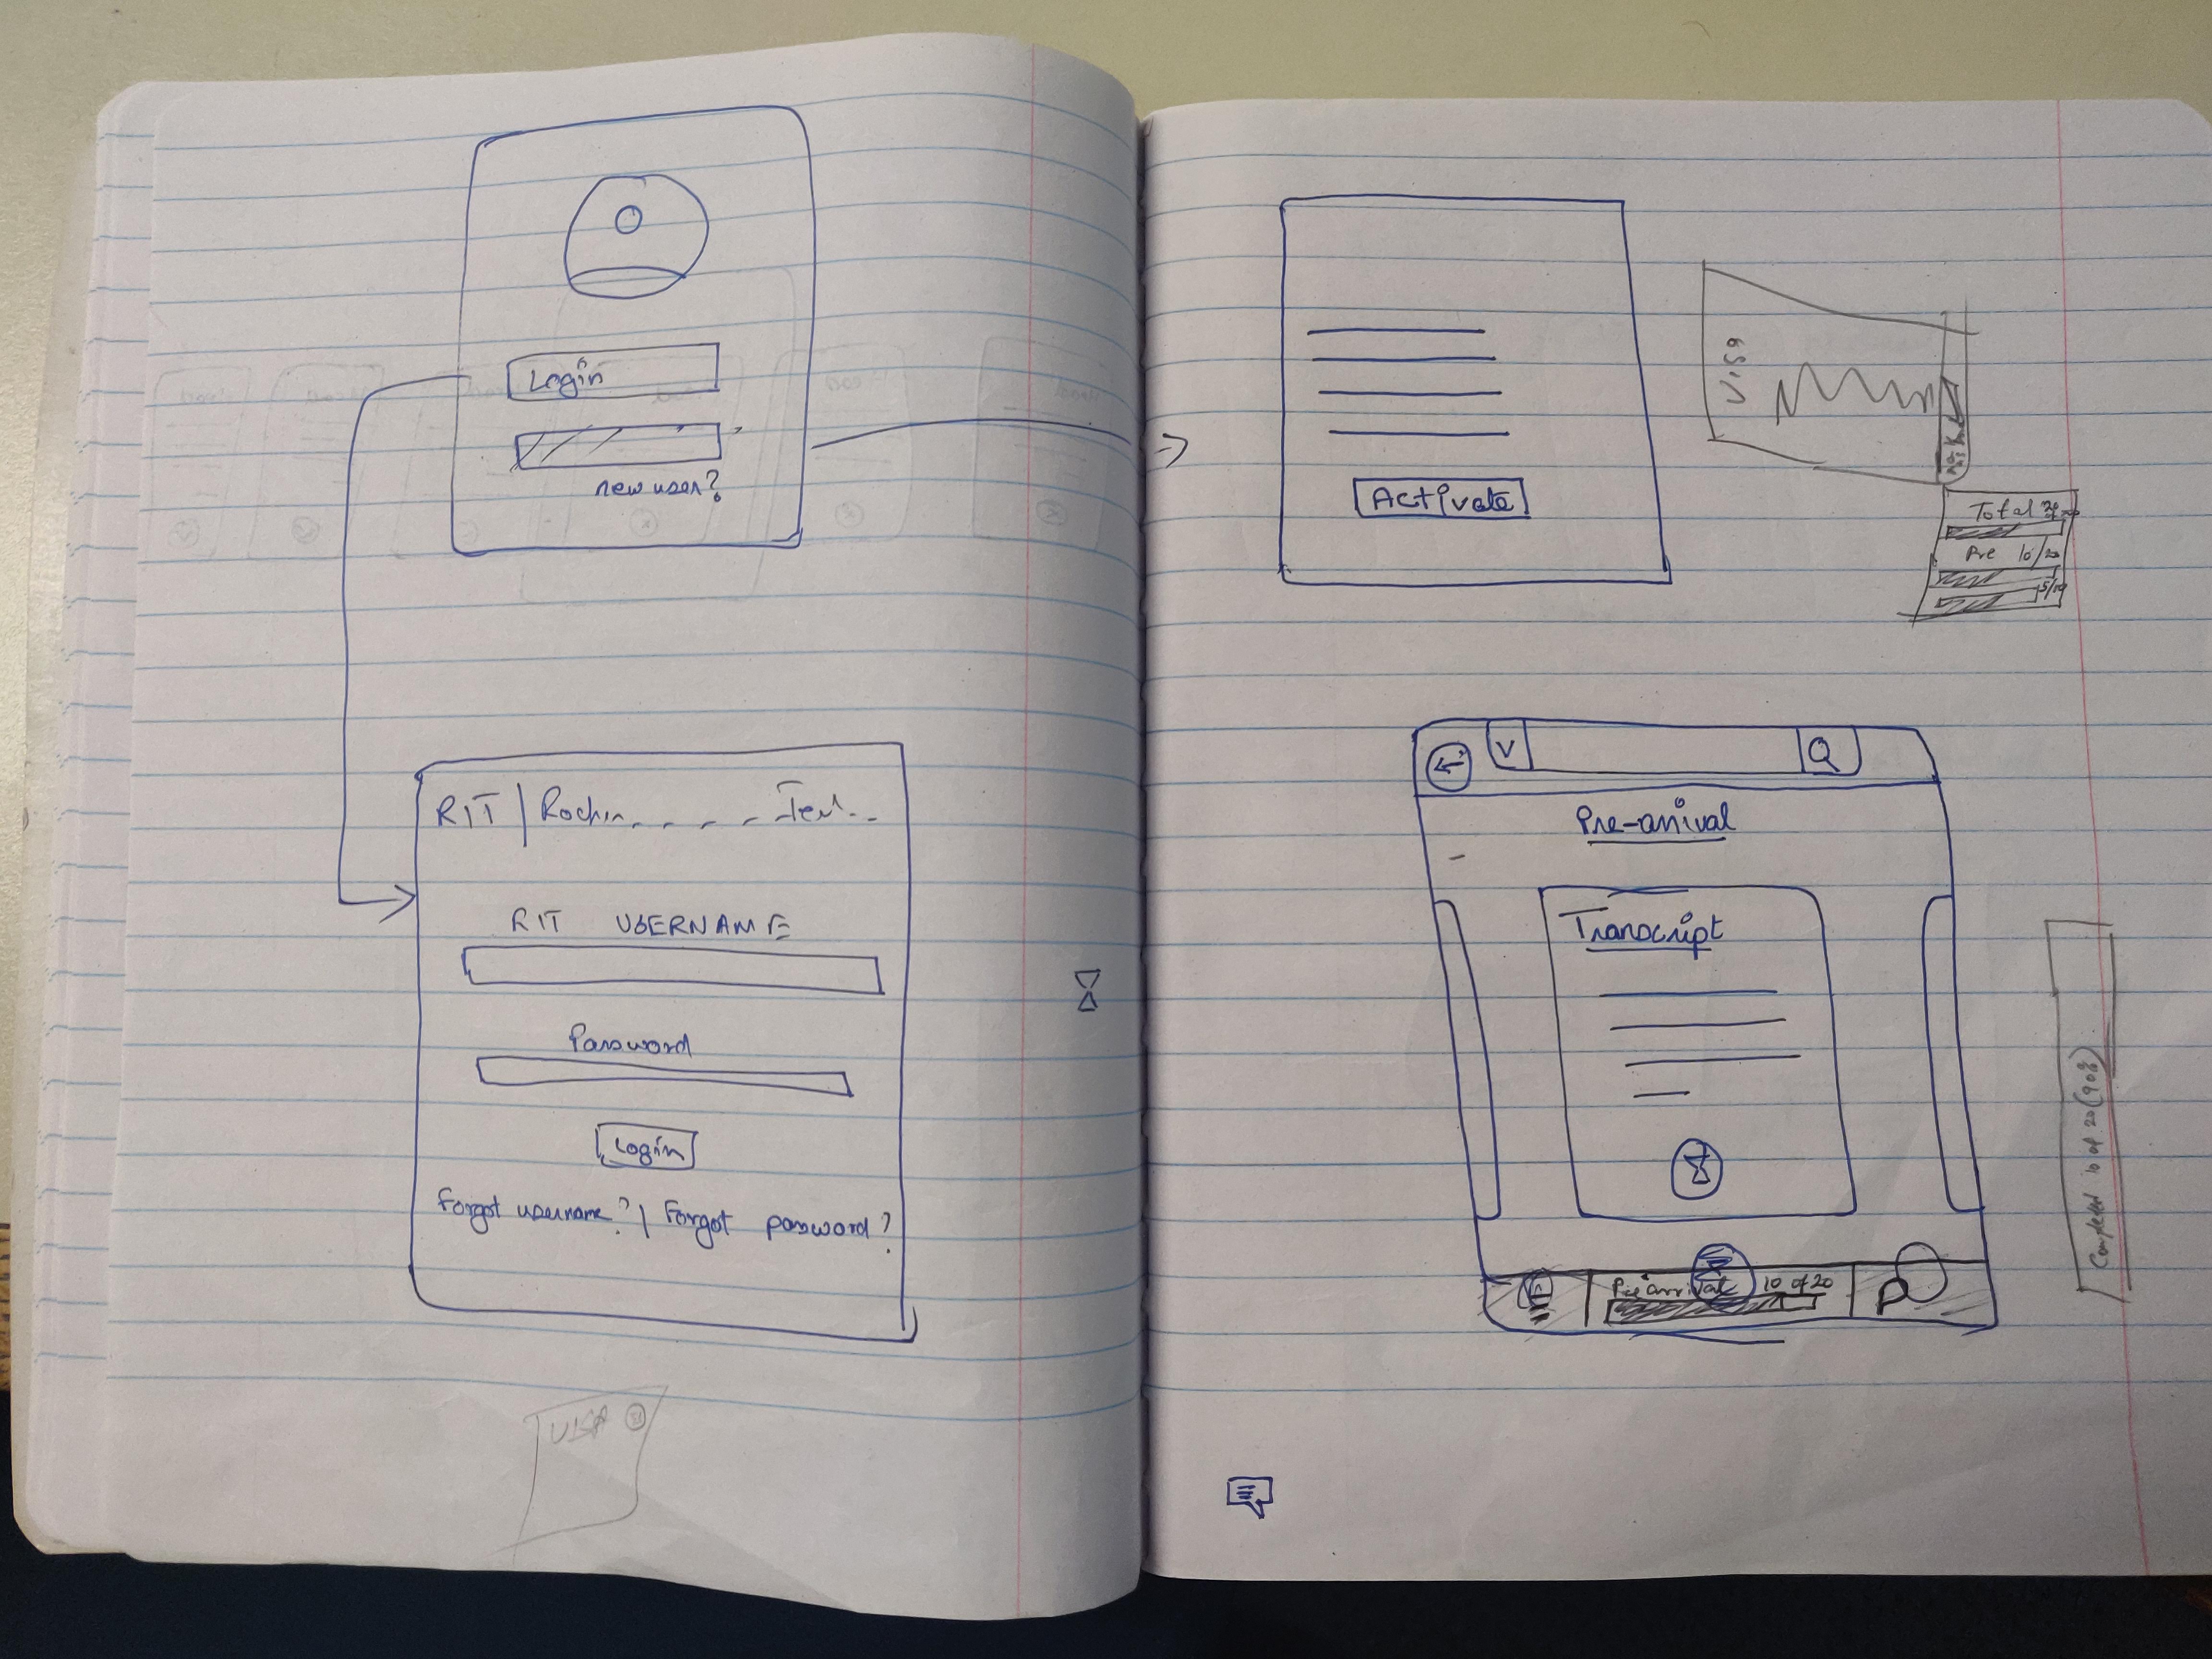 Login
new user?
RIT | Rochin - - - - - Tech - -
RIT USERNAME
Password
Login
Forgot username? | Forgot password?
VISA
Activate
Visa
Total
Pre 10/20
5/10
V
Pre-arrival
Transcript
Pre arrival 10 of 20
P
Completed 10 of 20 (90%)